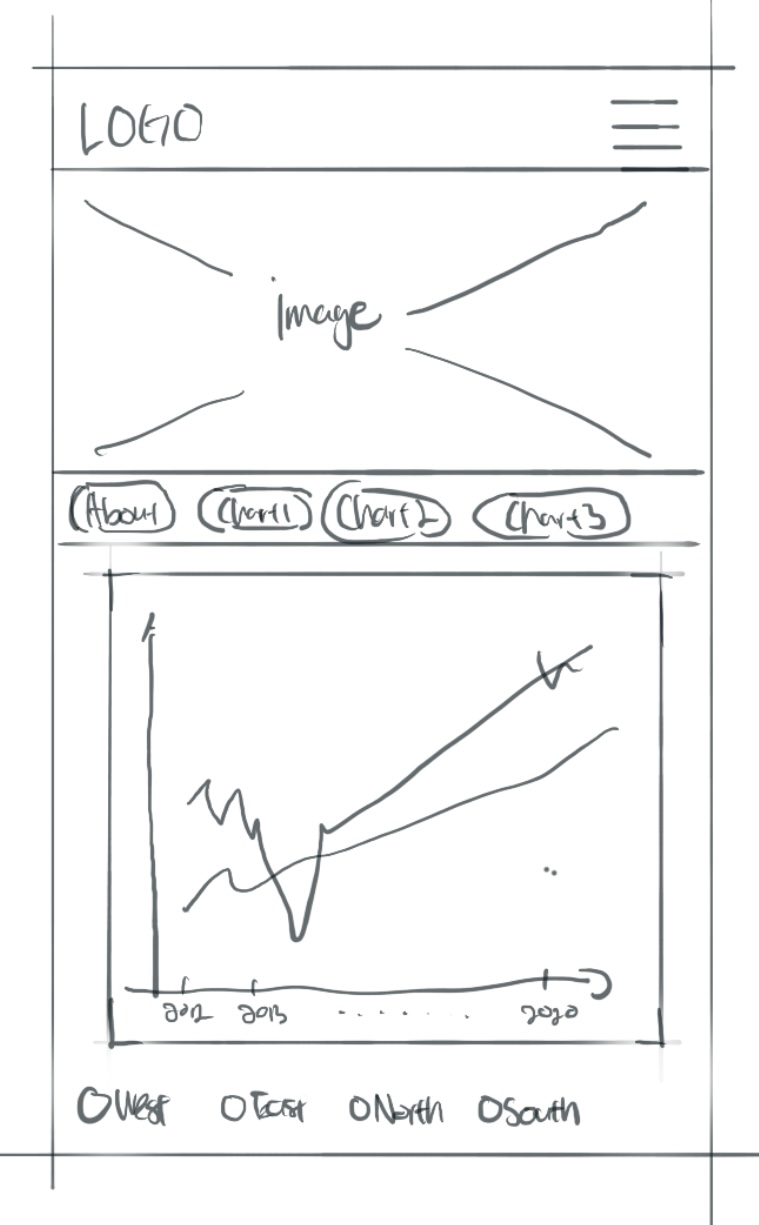 LOGO
image
About Chart1 Chart2 Chart3
2012 2013 . . . . . . . 2020
West East North South